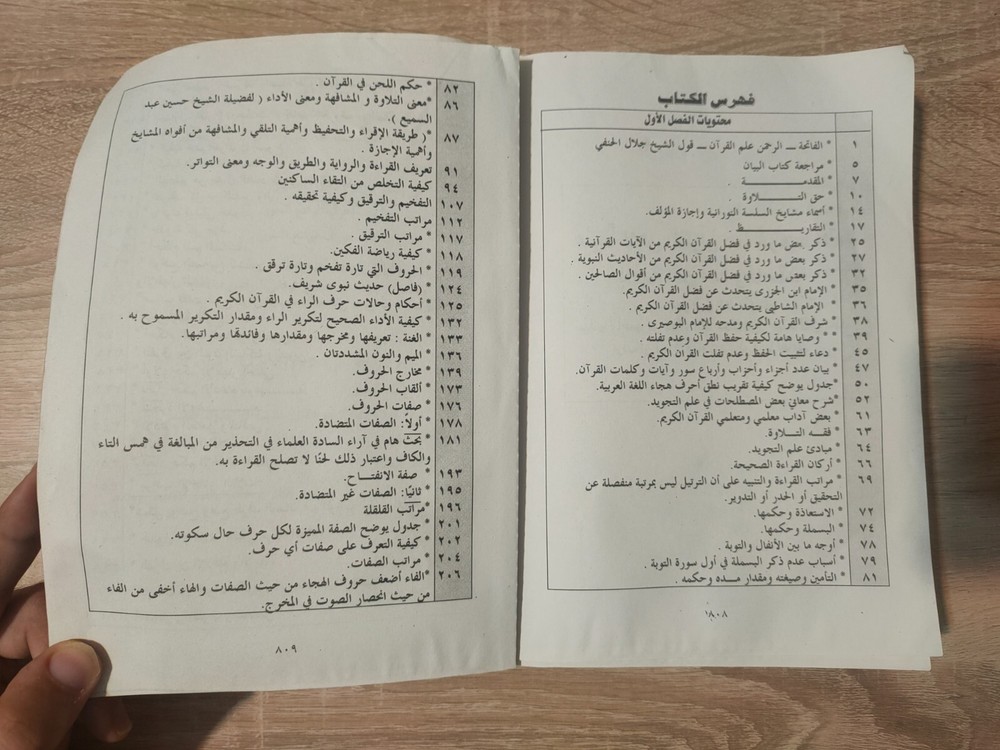 فهرس الكتاب
محتويات الفصل الأول
١ * الفاتحة ــ الرحمن علم القرآن ــ قول الشيخ جلال الحنفي
٥ * مراجعة كتاب البيان
٧ * المقدمـــــــــة .
١٠ * حق التـــــــلاوة .
١٤ * أسماء مشايخ السلسة النورانية وإجازة المؤلف.
١٧ * التقاريـــــــــظ .
٢٥ * ذكر بعض ما ورد في فضل القرآن الكريم من الآيات القرآنية .
٢٧ * ذكر بعض ما ورد في فضل القرآن الكريم من الأحاديث النبوية .
٣٢ * ذكر بعض ما ورد في فضل القرآن الكريم من أقوال الصالحين .
٣٥ * الإمام ابن الجزرى يتحدث عن فضل القرآن الكريم.
٣٦ * الإمام الشاطبى يتحدث عن فضل القرآن الكريم .
٣٨ * شرف القرآن الكريم ومدحه للإمام البوصيرى .
٣٩ * وصايا هامة لكيفية حفظ القرآن وعدم تفلته .
٤٥ * دعاء لتثبيت الحفظ وعدم تفلت القرآن الكريم .
٤٧ * بيان عدد أجزاء وأحزاب وأرباع سور وآيات وكلمات القرآن.
٥٠ *جدول يوضح كيفية تقريب نطق أحرف هجاء اللغة العربية.
٥٢ *شرح معاني بعض المصطلحات في علم التجويد.
٦١ * بعض آداب معلمي ومتعلمي القرآن الكريم.
٦٣ * فقـــه التـــلاوة.
٦٤ * مبادئ علم التجويد.
٦٦ * أركان القراءة الصحيحة.
٦٩ * مراتب القراءة والتنبيه على أن الترتيل ليس بمرتبة منفصلة عن
التحقيق أو الحدر أو التدوير.
٧٢ * الاستعاذة وحكمها.
٧٤ * البسملة وحكمها.
٧٨ * أوجه ما بين الأنفال والتوبة .
٧٩ * أسباب عدم ذكر البسملة في أول سورة التوبة .
٨١ * التأمين وصيغته ومقدار مـــده وحكمه .
٨٠٨
٨٢ * حكم اللحن في القرآن .
٨٦ *معنى التلاوة و المشافهة ومعنى الأداء ( لفضيلة الشيخ حسين عبد
السميع ).
٨٧ *( طريقة الإقراء والتحفيظ وأهمية التلقي والمشافهة من أفواه المشايخ
وأهمية الإجازة .
٩١ تعريف القراءة والرواية والطريق والوجه ومعنى التواتر.
٩٤ كيفية التخلص من التقاء الساكنين
١٠٧ التفخيم والترقيق وكيفية تحقيقه .
١١٢ مراتب التفخيم .
١١٧ * مراتب الترقيق .
١١٨ * كيفية رياضة الفكين.
١١٩ * الحروف التي تارة تفخم وتارة ترقق .
١٢٤ * (فاصل) حديث نبوى شريف.
١٢٥ * أحكام وحالات حرف الراء في القرآن الكريم .
١٣٢ * كيفية الأداء الصحيح لتكرير الراء ومقدار التكرير المسموح به .
١٣٣ * الغنة : تعريفها ومخرجها ومقدارها وفائدتها ومراتبها.
١٣٦ * الميم والنون المشددتان .
١٣٩ * مخارج الحروف.
١٧٣ * ألقاب الحروف.
١٧٦ * صفات الحروف.
١٧٨ * أولاً: الصفات المتضادة.
١٨١ * بحث هام في آراء السادة العلماء في التحذير من المبالغة في همس التاء
والكاف واعتبار ذلك لحنًا لا تصلح القراءة به.
١٩٣ * صفة الانفتـــاح.
١٩٥ * ثانيًا: الصفات غير المتضادة.
١٩٦ *مراتب القلقلة
٢٠١ * جدول يوضح الصفة المميزة لكل حرف حال سكوته.
٢٠٢ * كيفية التعرف على صفات أي حرف.
٢٠٤ * مراتب الصفات.
٢٠٦ *الفاء أضعف حروف الهجاء من حيث الصفات والهاء أخفى من الفاء
من حيث انحصار الصوت في المخرج.
٨٠٩